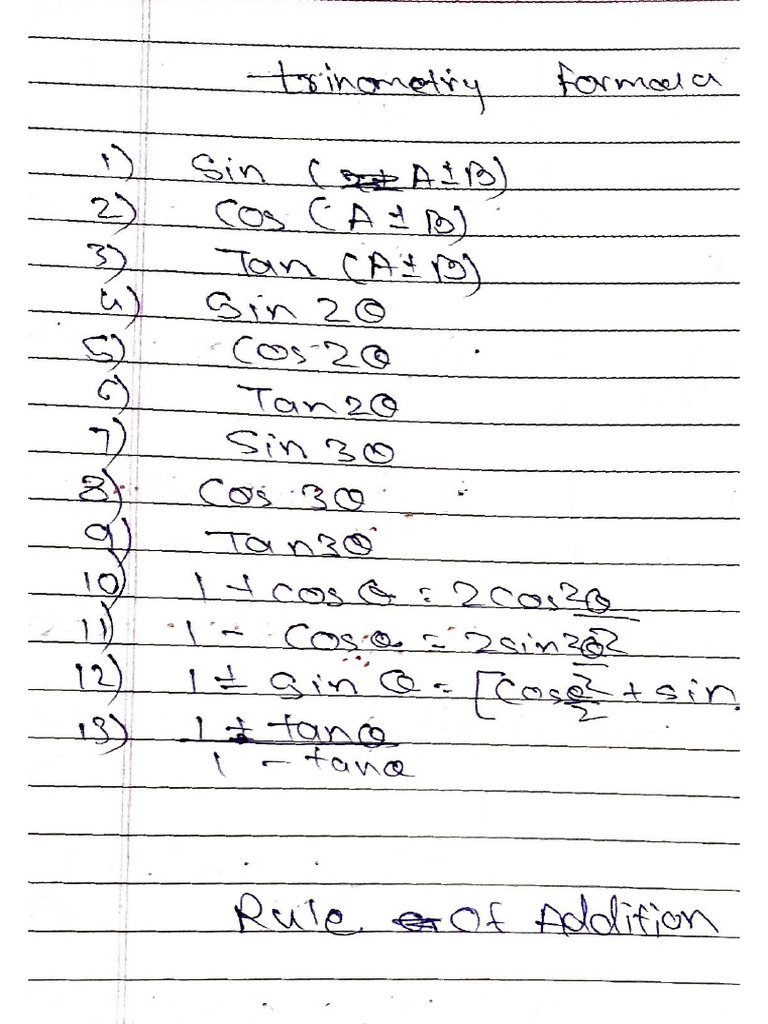 trinometry formula
1) Sin (A±B)
2) Cos (A±B)
3) Tan (A±B)
4) Sin 2θ
5) Cos 2θ
6) Tan 2θ
7) Sin 3θ
8) Cos 3θ
9) Tan3θ
10) 1 + cos θ = 2cos²θ/2
11) 1 - cosθ = 2sin²θ/2
12) 1 ± Sin θ = [cosθ/2 + sin
13) 1 + tanθ
1 - tanθ
Rule Of Addition